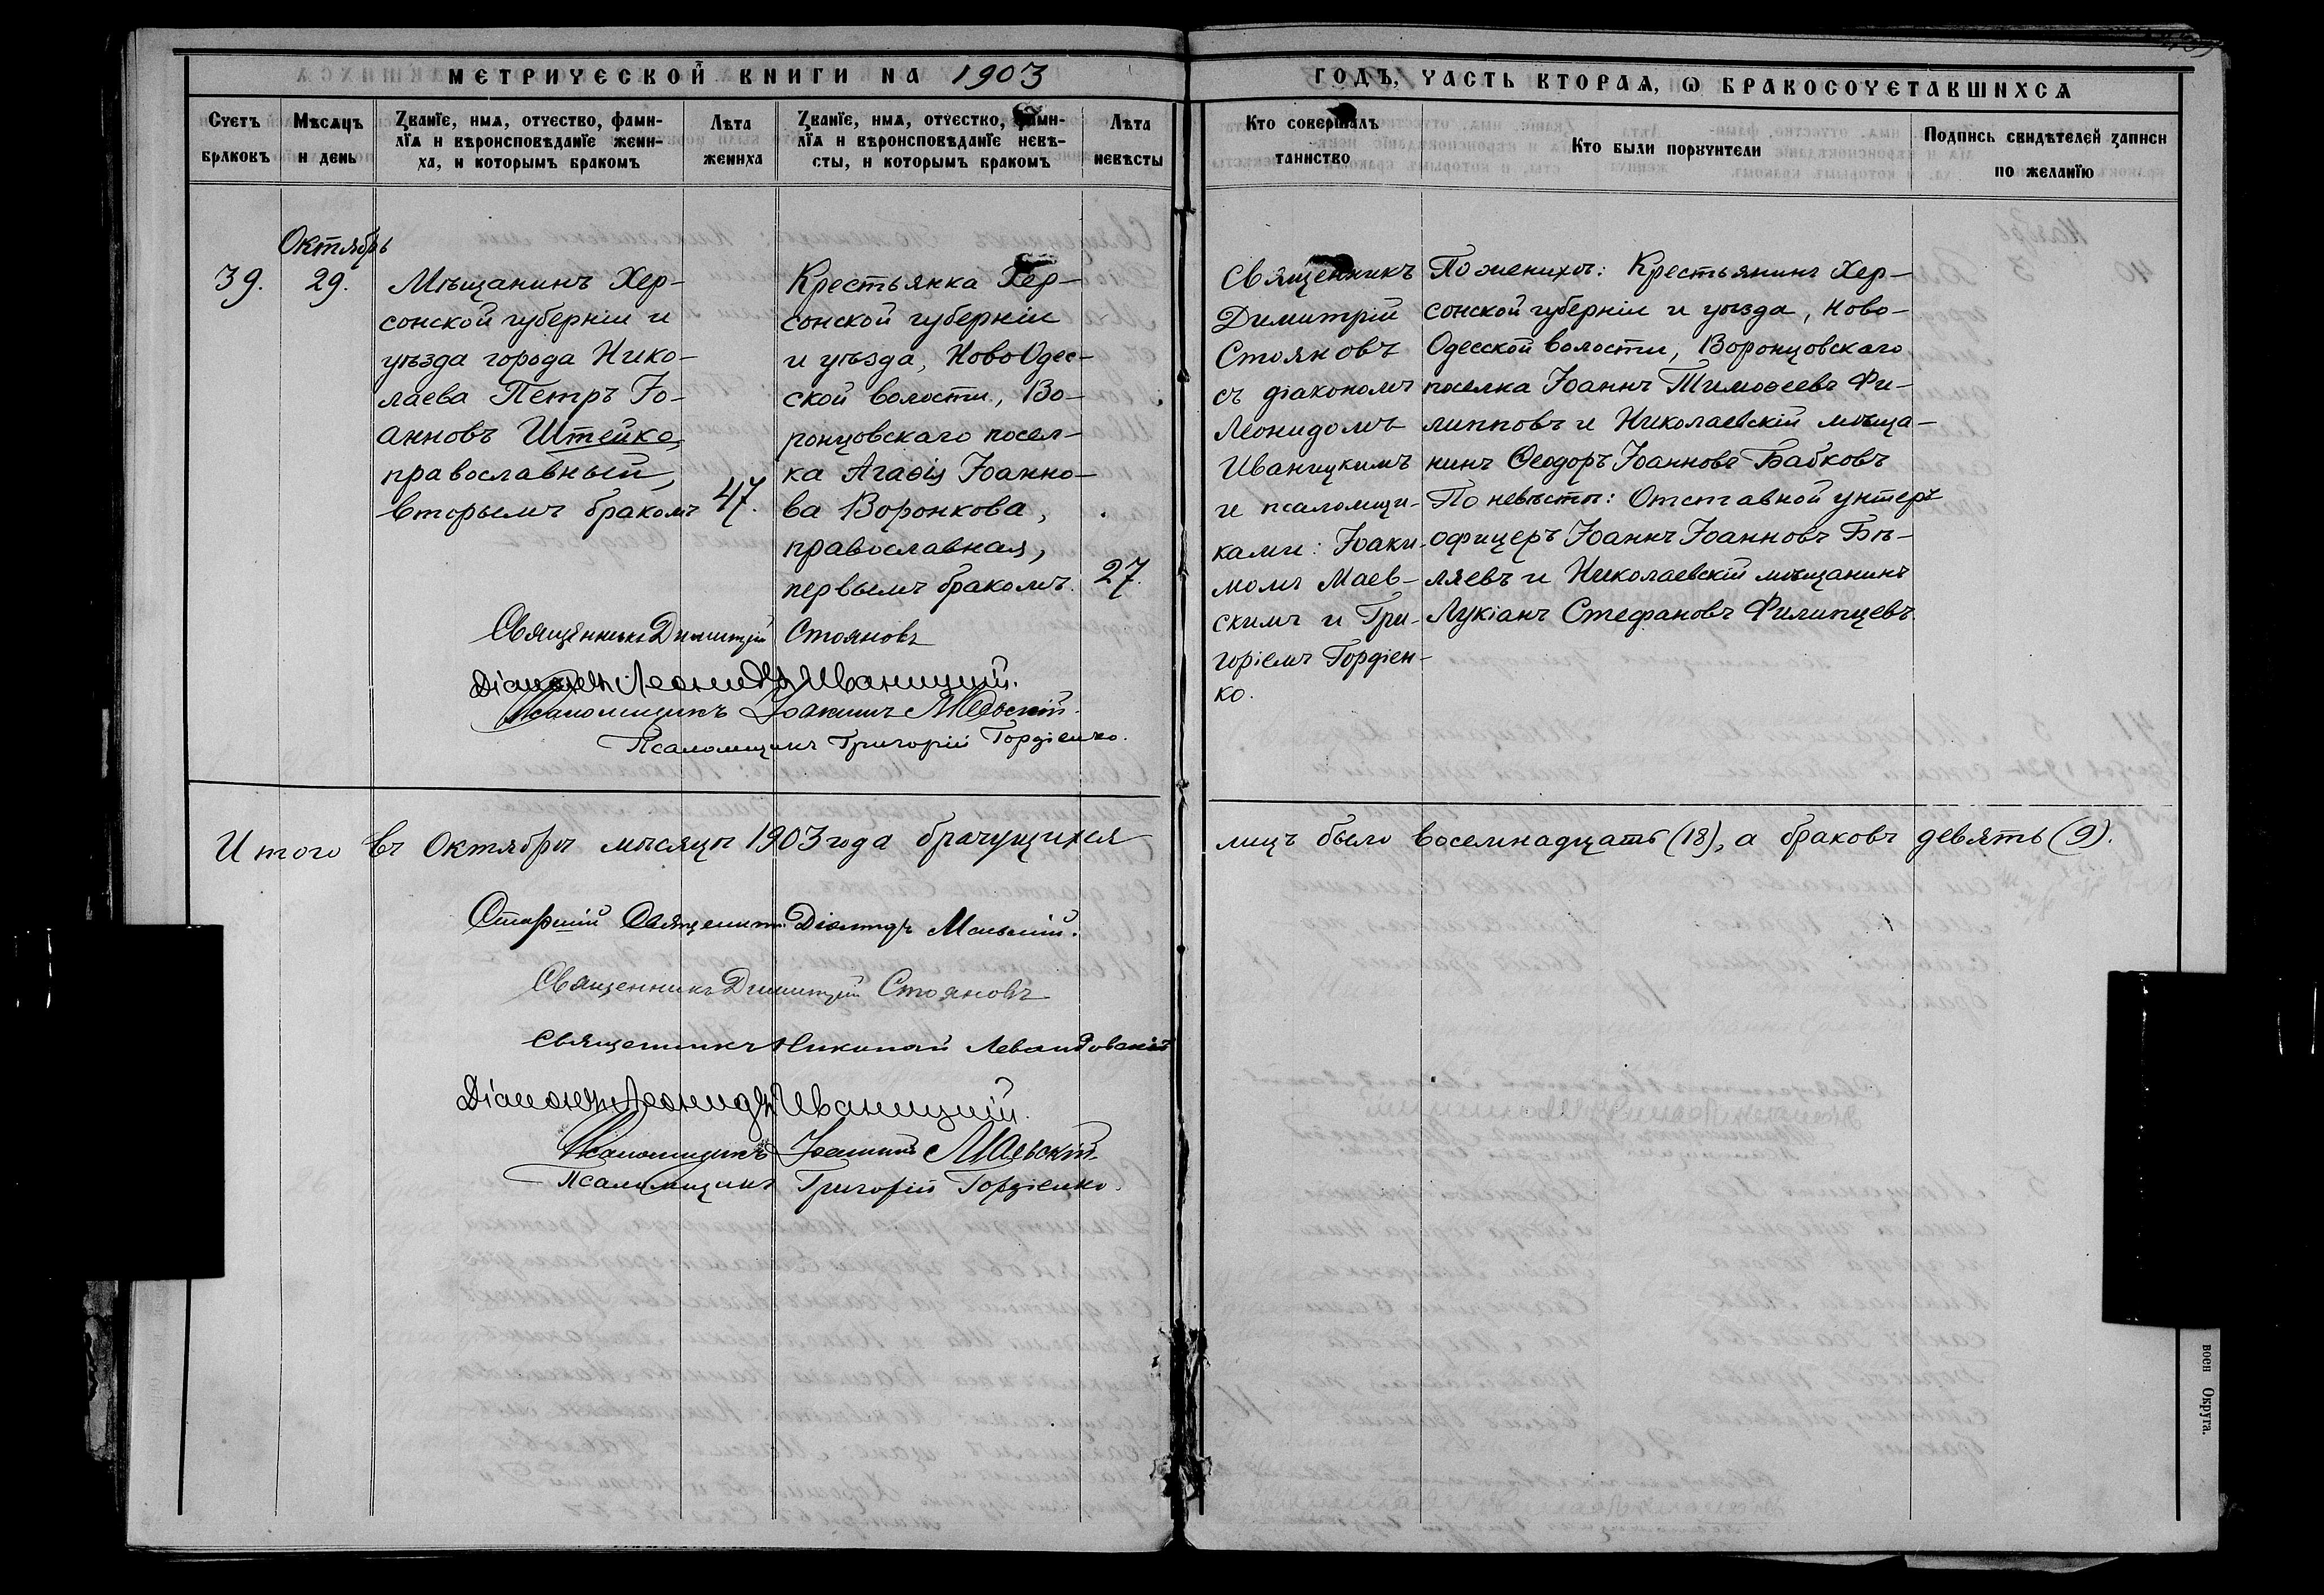 МЕТРИЧЕСКОЙ КНИГИ НА 1903
ГОДЪ, ЧАСТЬ ВТОРАЯ, Ѡ БРАКОСОЧЕТАВШИХСЯ
Счетъ
браковъ
Мѣсяцъ
и день
Званїе, имя, отчество, фами-
лїя и вѣроисповѣданїе жени-
ха, и которымъ бракомъ
Лѣта
жениха
Званїе, имя, отчество, фами-
лїя и вѣроисповѣданїе невѣ-
сты, и которымъ бракомъ
Лѣта
невѣсты
Кто совершалъ
таинство
Кто были поручители
Подпись свидѣтелей записи
по желанїю
39.
Октябрь
29.
Мѣщанинъ Хер-
сонской губерніи и
уѣзда города Нико-
лаева Петръ Іо-
анновъ Штейко,
православный,
вторымъ бракомъ
47.
Крестьянка Хер-
сонской губерніи
и уѣзда, НовоОдес-
ской волости, Во-
ронцовскаго посел-
ка Агаѳія Іоанно-
ва Воронкова,
православная,
первымъ бракомъ.
27.
Священникъ Димитрій Стояновъ
Діаконъ Леонидъ Иваницкій.
Псаломщикъ Іоакимъ Маевскій.
Псаломщикъ Григорій Гордіенко.
Священникъ
Димитрій
Стояновъ
съ діакономъ
Леонидомъ
Иваницкимъ
и псаломщи-
ками: Іоаки-
момъ Маев-
скимъ и Гри-
горіемъ Гордіен-
ко.
По женихѣ: Крестьянинъ Хер-
сонской губерніи и уѣзда, Ново-
Одесской волости, Воронцовскаго
поселка Іоаннъ Тимоѳеевъ Фи-
липповъ и Николаевскій мѣща-
нинъ Ѳеодоръ Іоанновъ Бабковъ
По невѣстѣ: Отставной унтеръ
офицеръ Іоаннъ Іоанновъ Бѣ-
ляевъ и Николаевскій мѣщанинъ
Лукіанъ Стефановъ Филипцевъ.
Итого въ Октябрѣ мѣсяцѣ 1903 года брачущихся
лицъ было восемнадцать (18), а браковъ девять (9).
Старшій Священникъ Діомидъ
Священникъ Димитрій Стояновъ
Священникъ Николай Левандовскій
Діаконъ Леонидъ Иваницкій.
Псаломщикъ Іоакимъ Маевскій.
Псаломщикъ Григорій Гордіенко.
воен Округа.